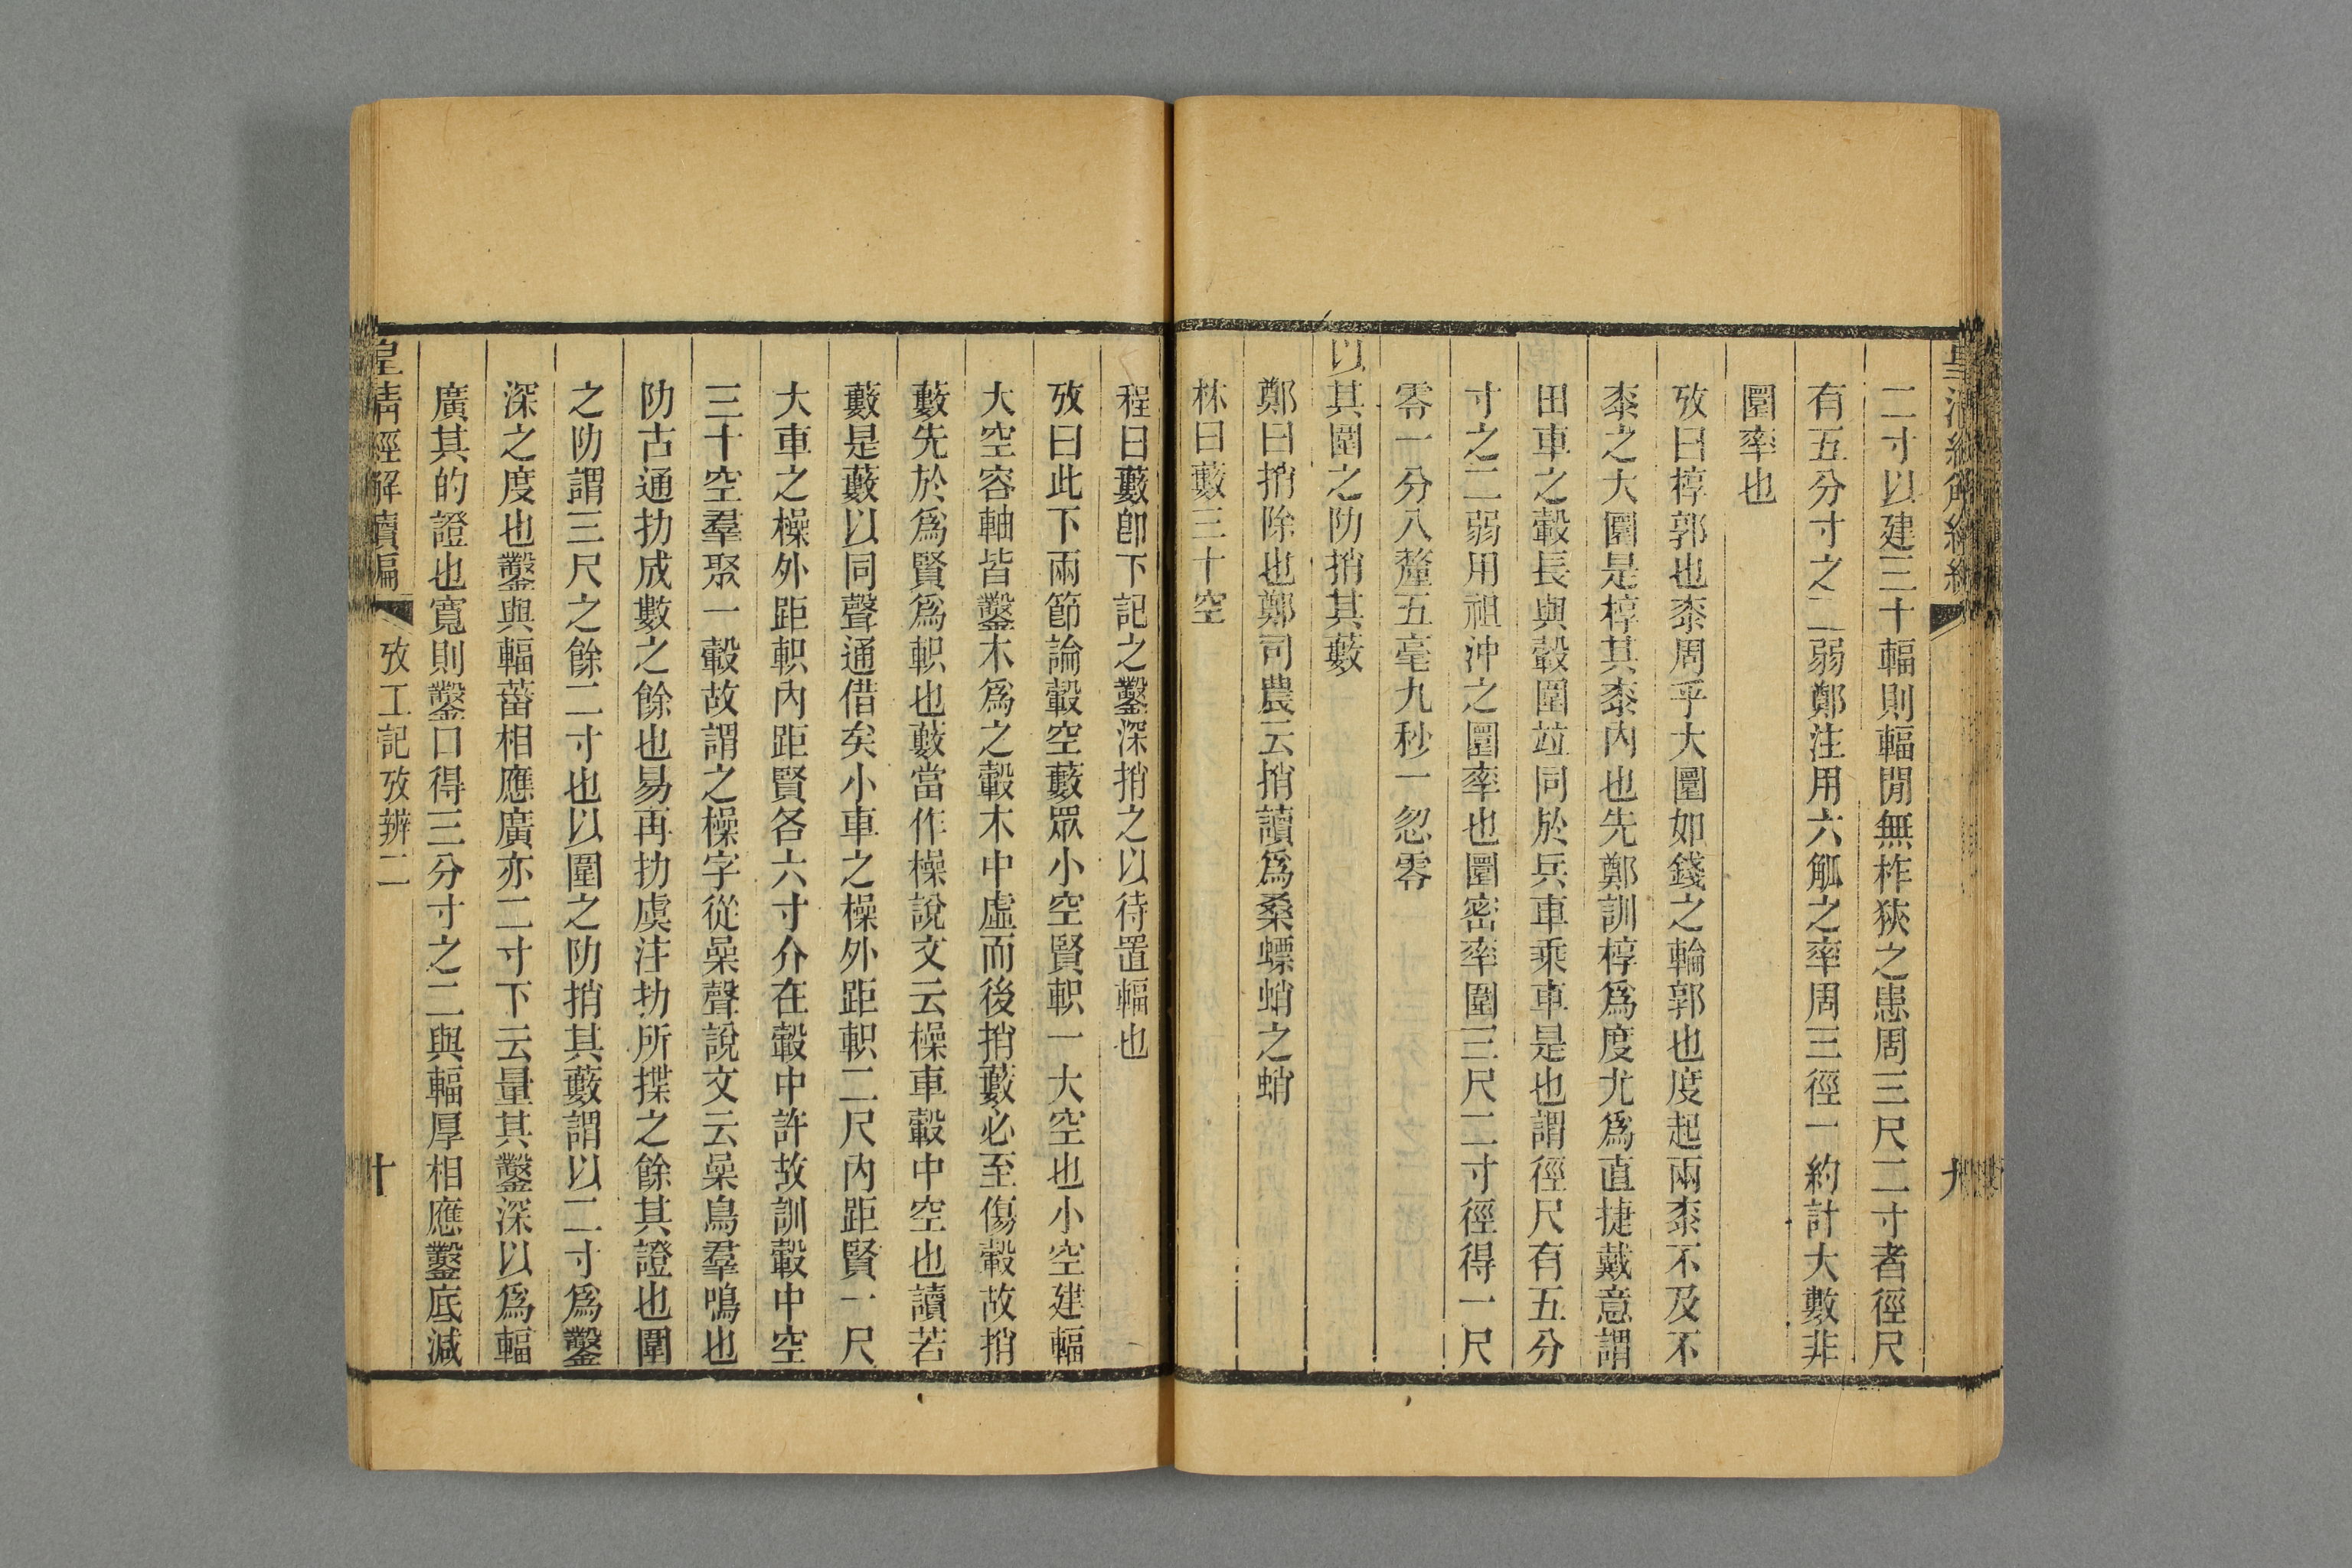 二寸以建三十輻則輻閒無柞狹之患周三尺二寸者徑尺
有五分寸之二弱鄭注用六觚之率周三徑一約計大數非
圍率也
攷曰椁郭也桼周乎大圍如錢之輪郭也度起兩桼不及不
桼之大圍是椁其桼內也先鄭訓椁爲度尤爲直捷戴意謂
田車之轂長與轂圍竝同於兵車乘車是也謂徑尺有五分
寸之二弱用祖沖之圍率也圍密率圍三尺二寸徑得一尺
零一分八釐五毫九秒一忽零
以其圍之阞捎其藪
鄭曰捎除也鄭司農云捎讀爲桑螵蛸之蛸
林曰藪三十空
程曰藪卽下記之鑿深捎之以待置輻也
攷曰此下兩節論轂空藪眾小空賢軹一大空也小空建輻
大空容軸皆鑿木爲之轂木中虛而後捎藪必至傷轂故捎
藪先於爲賢爲軹也藪當作橾說文云橾車轂中空也讀若
藪是藪以同聲通借矣小車之橾外距軹二尺內距賢一尺
大車之橾外距軹內距賢各六寸介在轂中許故訓轂中空
三十空羣聚一轂故謂之橾字從喿聲說文云喿鳥羣鳴也
阞古通扐成數之餘也易再扐虞注扐所揲之餘其證也圍
之阞謂三尺之餘二寸也以圍之阞捎其藪謂以二寸爲鑿
深之度也鑿與輻菑相應廣亦二寸下云量其鑿深以爲輻
廣其的證也寬則鑿口得三分寸之二與輻厚相應鑿底減
皇淸經解續編
攷工記攷辨二
十